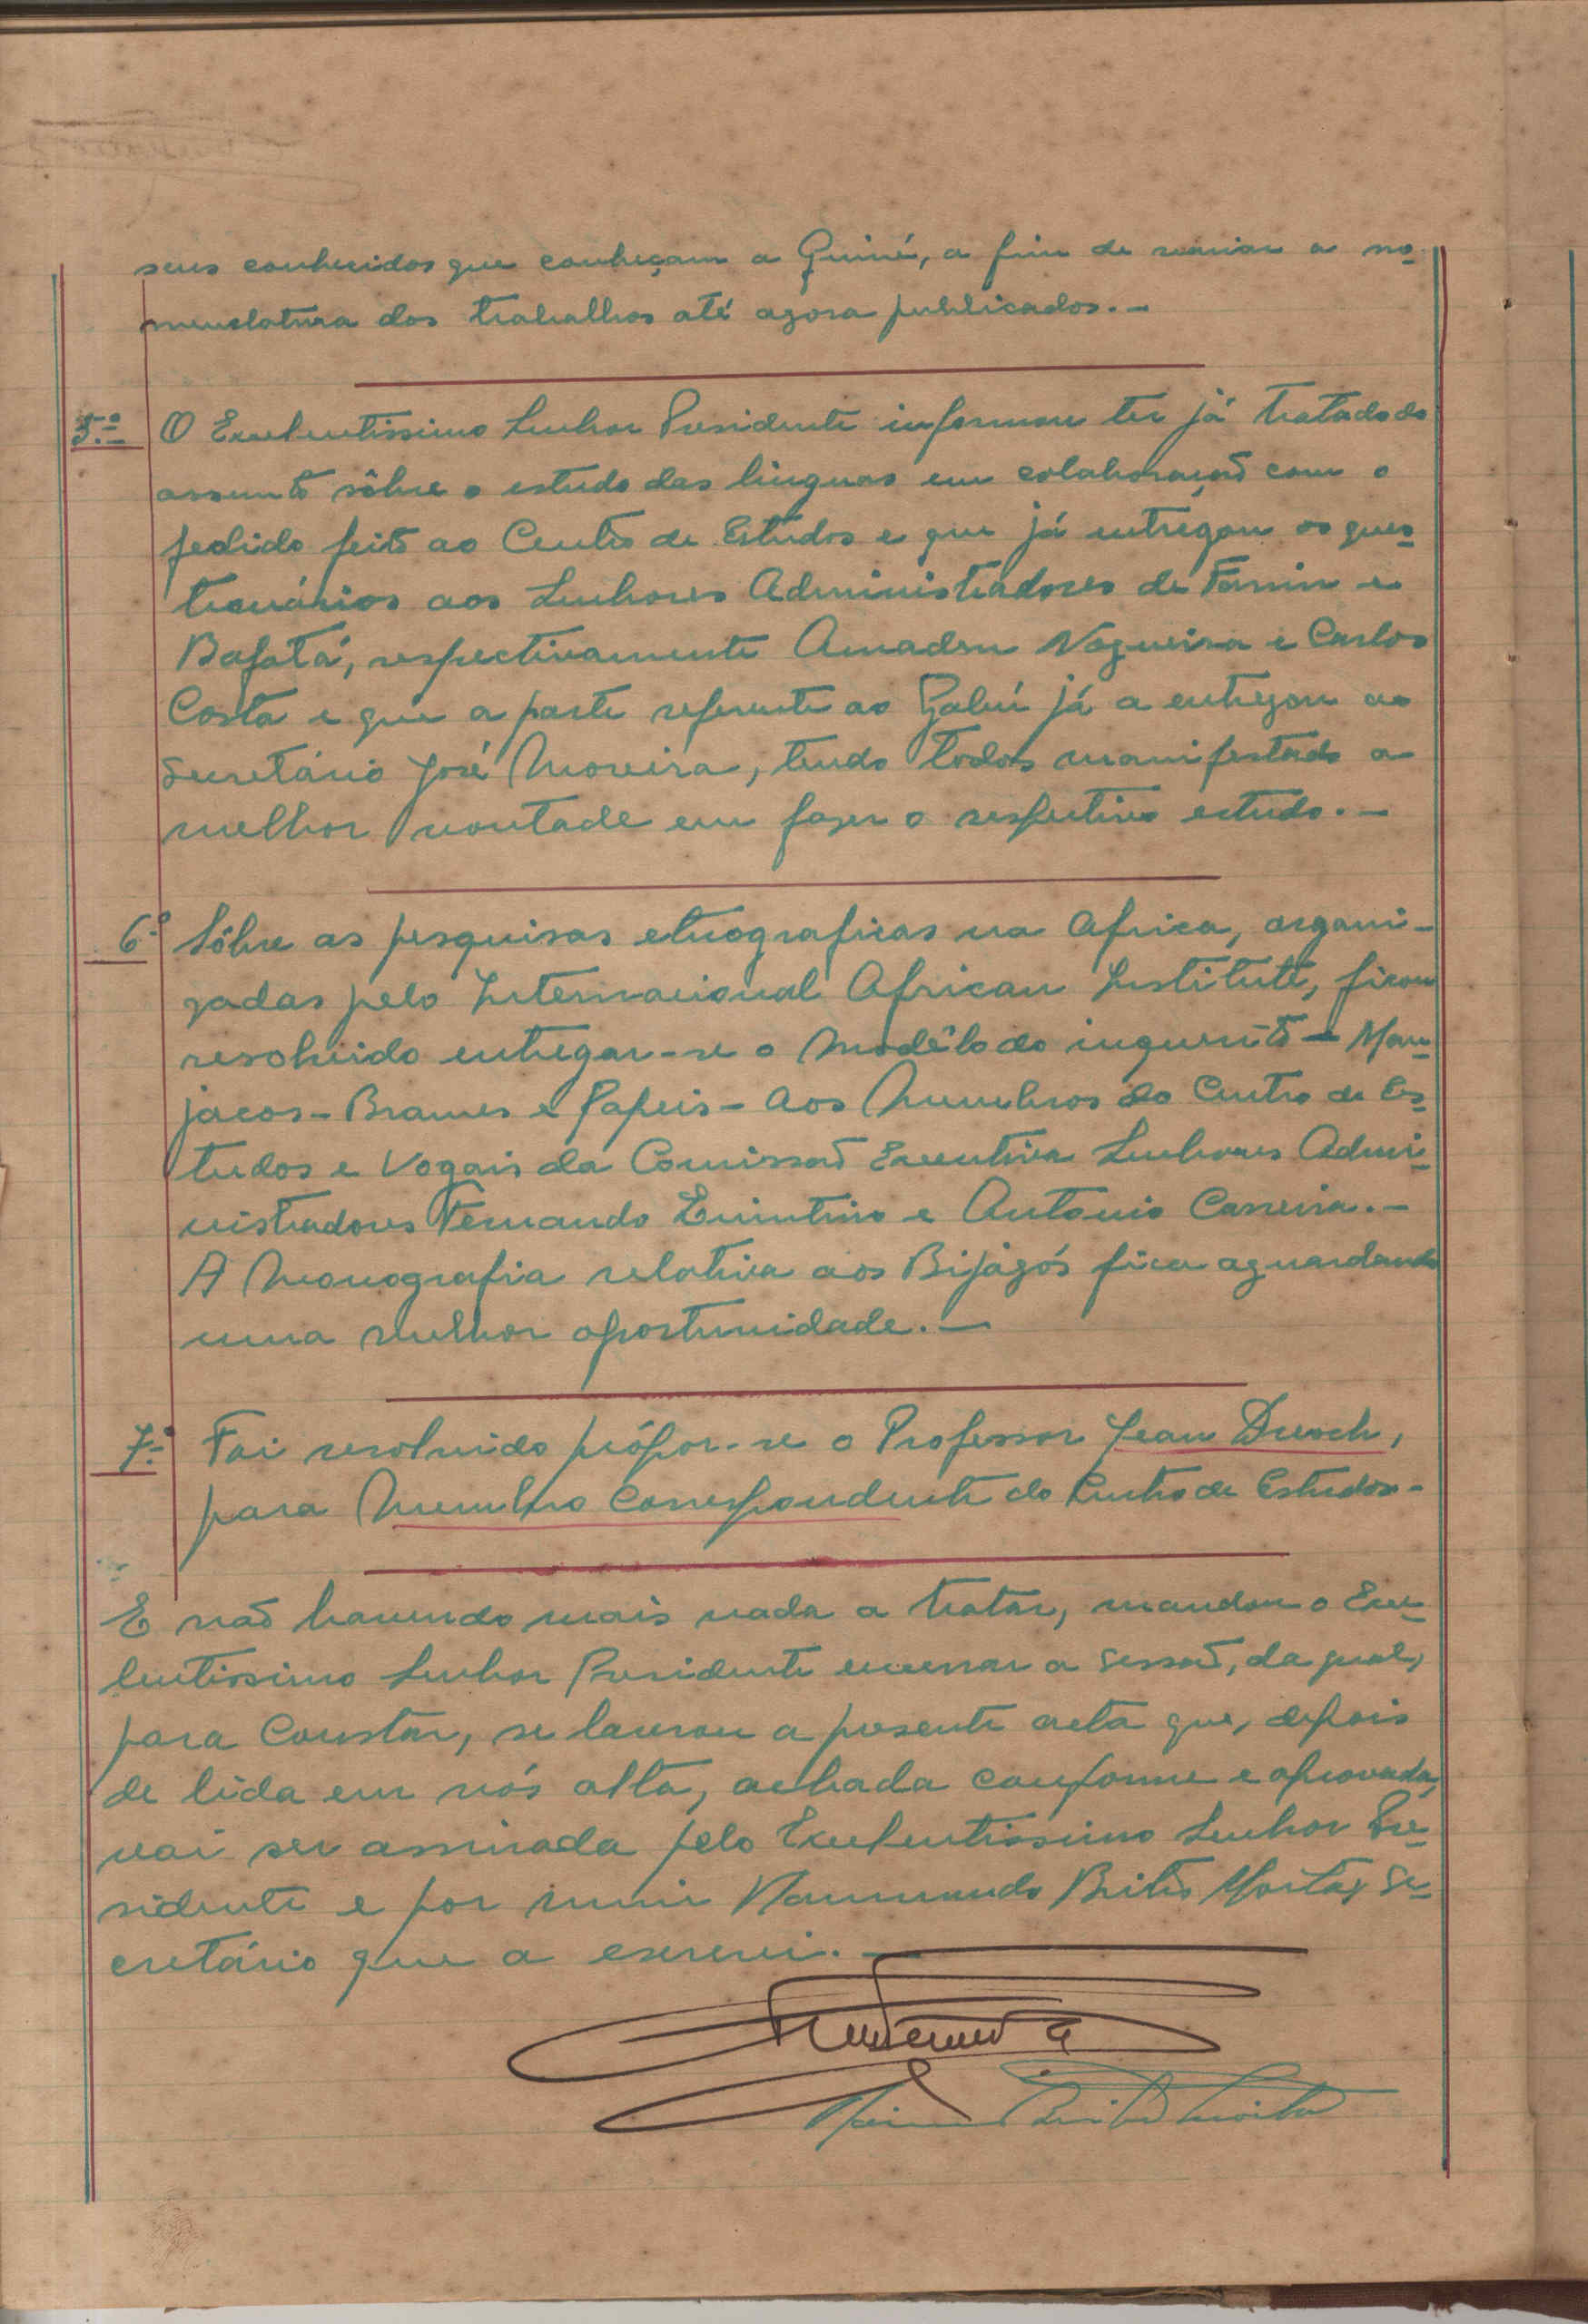 seus conhecidos que conheçam a Guiné, a fim de reunior a no-
menclatura dos trabalhos até agora publicados.-
5.º O Excelentissimo Senhor Presidente informou ter já tratado do
assunto sôbre o estudo das linguas em colaboração com o
pedido feito ao Centro de Estudos e que já entregou os ques-
tionários aos Senhores Administradores de Farim e
Bafatá, respectivamente Amadeu Nogueira e Carlos
Costa e que a parte referente ao Gabú já a entregou ao
Secretário José Moreira, tendo todos manifestado a
melhor vontade em fazer o respectivo estudo.-
6.º Sôbre as pesquisas etnograficas na Africa, organi-
zadas pelo Internacional African Institute, ficou
resolvido entregar-se o Modêlo do inquerito - Man-
jacos - Brames e Papeis - Aos Membros do Centro de Es-
tudos e Vogais da Comissão Executiva Senhores Admi-
nistradores Fernando Quintino e Antonio Carreira.-
A Monografia relativa aos Bijagós fica aguardando
uma melhor oportunidade.-
7.º Foi resolvido própor-se o Professor Jean Dresch,
para Membro Correspondente do Centro de Estudos.-
E não havendo mais nada a tratar, mandou o Exce-
lentissimo Senhor Presidente encerrar a sessão, da qual,
para Constar, se lavrou a presente acta que, depois
de lida em vós alta, achada conforme e aprovada,
vai ser assinada pelo Excelentissimo Senhor Pre-
sidente e por mim Brito Se-
cretário que a escrevi.-